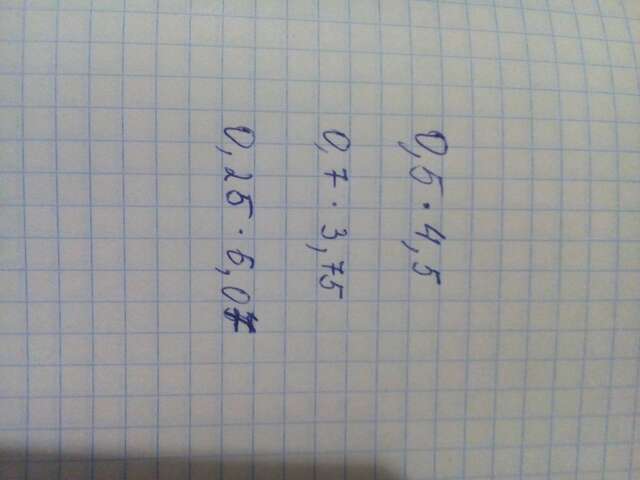 0,5 · 4,5
0,7 · 3,75
0,25 · 5,07